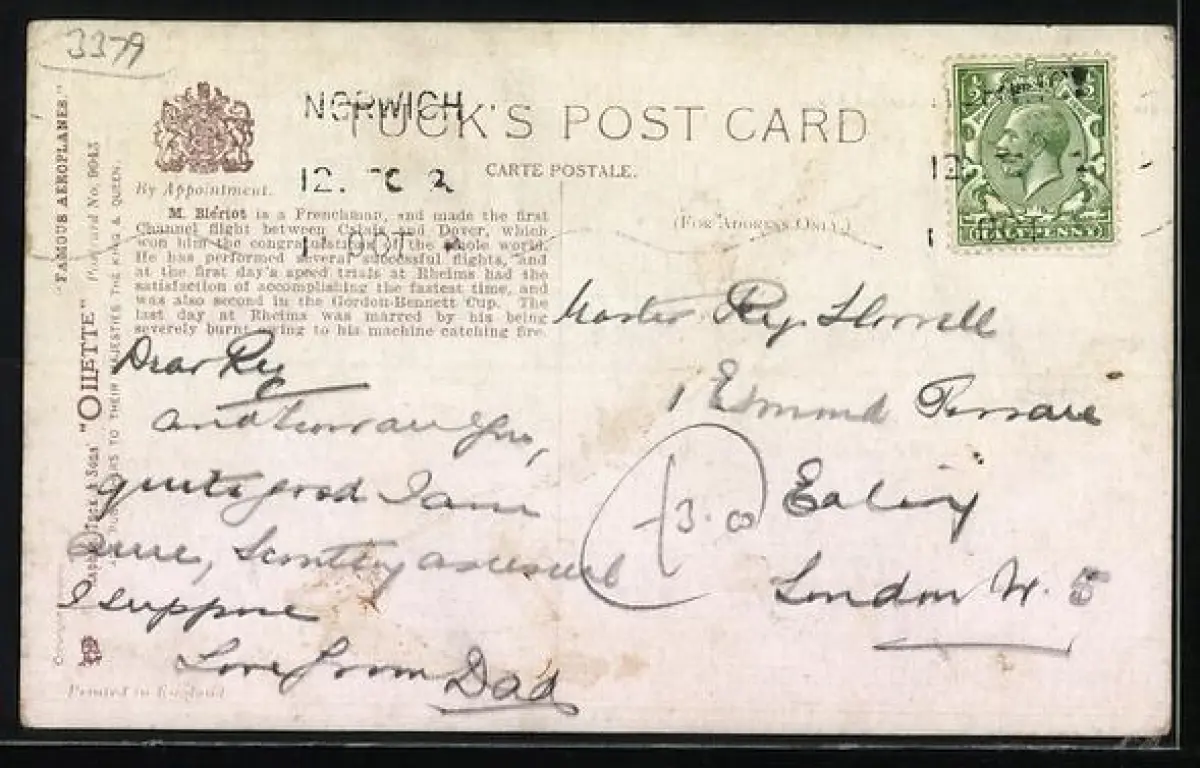 3379
NORWICH
TUCK'S POST CARD
12. 2
CARTE POSTALE.
By Appointment.
(FOR ADDRESS ONLY.)
M. Blériot is a Frenchman, and made the first
Channel flight between Calais and Dover, which
won him the congratulations of the whole world.
He has performed several successful flights, and
at the first day's speed trials at Rheims had the
satisfaction of accomplishing the fastest time, and
was also second in the Gordon-Bennett Cup. The
last day at Rheims was marred by his being
severely burnt owing to his machine catching fire.
1 OCT
HALFPENNY
"FAMOUS AEROPLANES."
Postcard No. 9943
"OILETTE"
Tuck & Sons
TO THEIR MAJESTIES THE KING & QUEEN.
Dear Reg
and how are you,
quite good I am
sure, Scouting as usual
I suppose
Love from Dad
Master Reg.
1 Esmond Terrace
Ealing
London W. 5
3.00
Printed in England